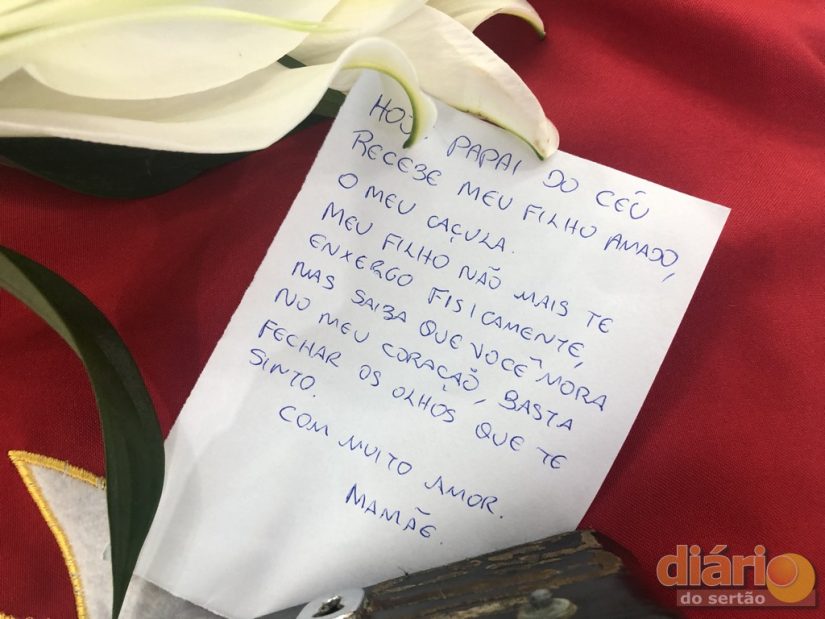 HOJE PAPAI DO CÉU
RECEBE MEU FILHO AMADO,
O MEU CAÇULA.
MEU FILHO NÃO MAIS TE
ENXERGO FISICAMENTE,
MAS SAIBA QUE VOCÊ MORA
NO MEU CORAÇÃO, BASTA
FECHAR OS OLHOS QUE TE
SINTO.
COM MUITO AMOR.
MAMÃE.
diário
do sertão